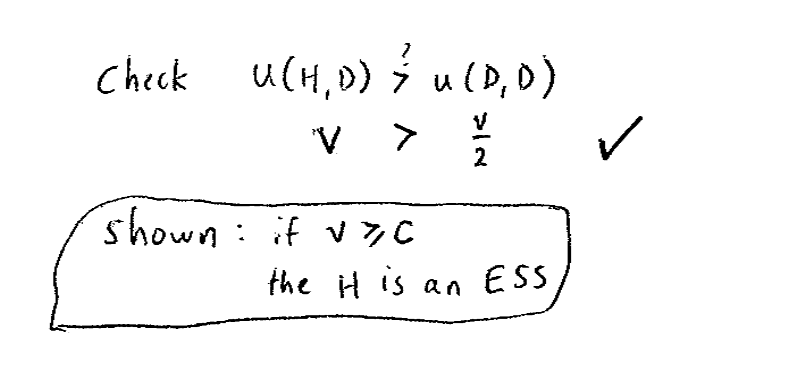 Check u(H,D) >? u(D,D)
V > V/2 ✓
Shown: if V ⩾ C
the H is an ESS